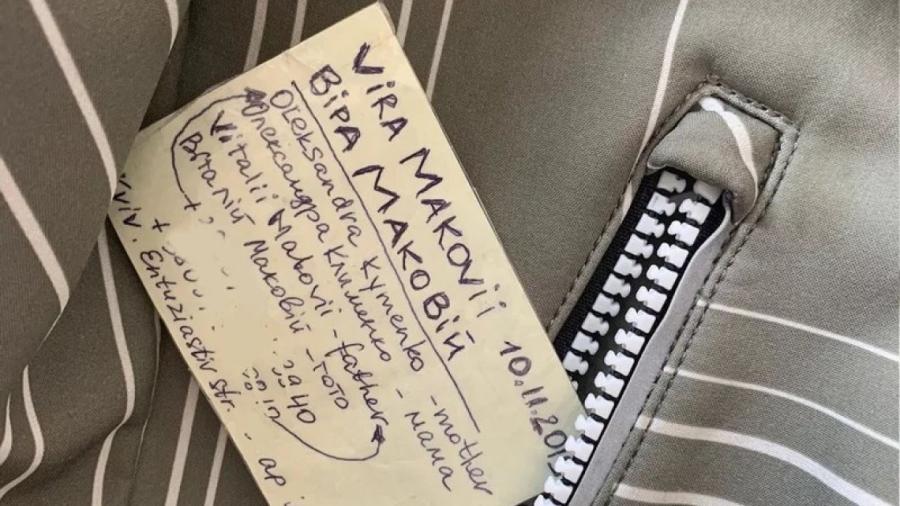 VIRA MAKOVII
ВІРА МАКОВІЙ 10.11.20
Oleksandra Kymenko - mother
Олександра Клименко - мама
Vitalii Makovii - father
Віталій Маковій - тато
Entuziastiv str. - ap